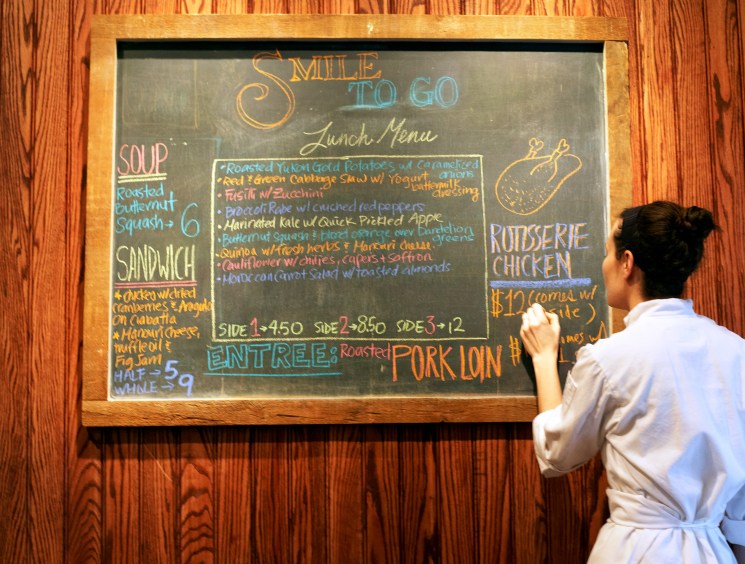 SMILE
TO GO
Lunch Menu
SOUP
Roasted
Butternut
Squash → 6
SANDWICH
* chicken w/ dried
cranberries & Arugula
on Ciabatta
* Manouri cheese,
truffle oil &
Fig Jam
HALF → 5
WHOLE → 9
• Roasted Yukon Gold Potatoes w/ Caramelized
onions
• Red & Green Cabbage Slaw w/ Yogurt
buttermilk
dressing
• Fusilli w/ Zucchini
• Broccoli Rabe w/ crushed red peppers
• Marinated Kale w/ Quick Pickled Apple
• Butternut Squash & blood orange over Dandelion
greens
• Quinoa w/ Fresh herbs & Manouri cheese
• Cauliflower w/ chilies, capers & Saffron
• Moroccan Carrot Salad w/ toasted almonds
SIDE 1 → 4.50 SIDE 2 → 8.50 SIDE 3 → 12
ENTREE: Roasted PORK LOIN
ROTISSERIE
CHICKEN
$12 (comes w/
side)